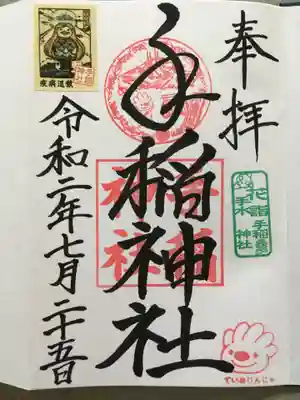 奉拝
花詣
手水
手稲
神社
手稲神社
令和二年七月二十五日
疾病退散
ていねじんじゃ